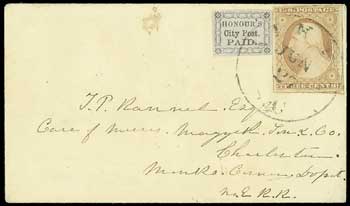 HONOUR'S
City Post.
PAID.
U.S. POSTAGE
THREE CENTS
JUN
T. P. Esq
Care of Messrs Son & Co.
Charleston
Monks Corner Depot
N.E.R.R.